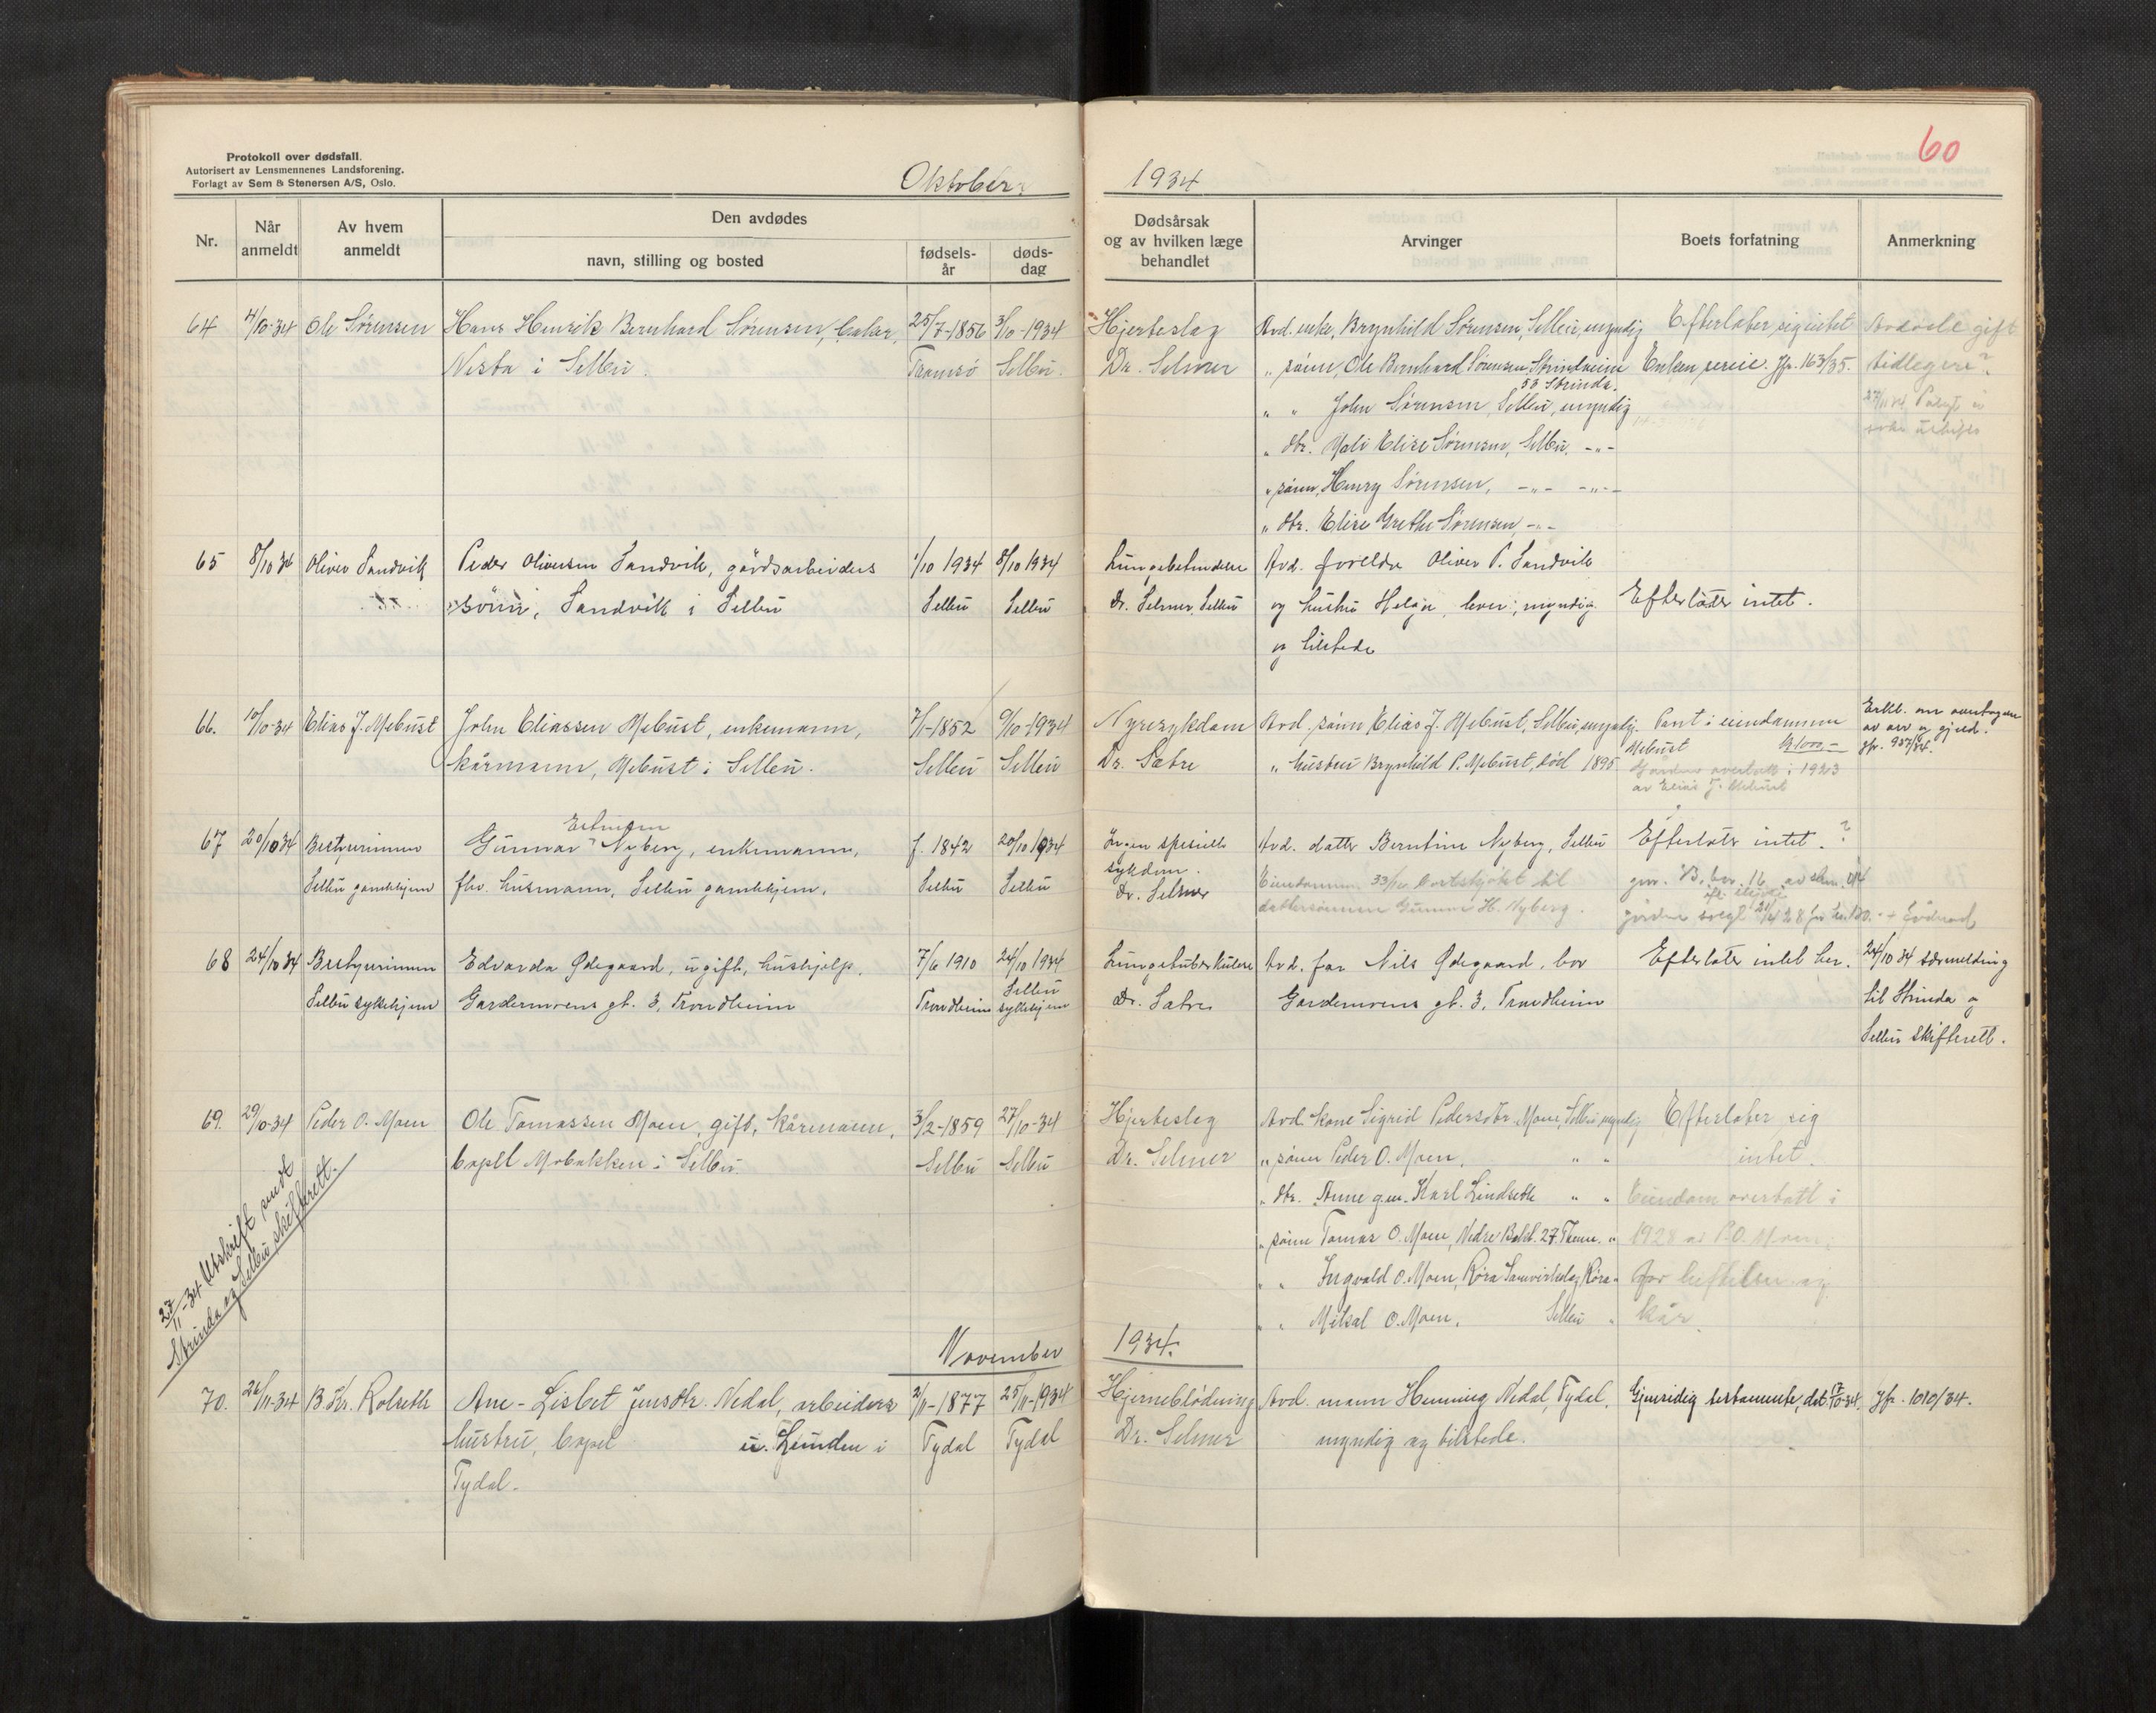 Protokoll over dødsfall.
Autorisert av Lensmennenes Landsforening.
Forlagt av Sem & Stenersen A/S, Oslo.
Oktober
1934
60
Nr.
Når anmeldt
Av hvem anmeldt
Den avdødes
navn, stilling og bosted
fødsels-år
døds-dag
Dødsårsak og av hvilken læge behandlet
Arvinger
Boets forfatning
Anmerkning
64 4/10-34 Ole Sørensen Hans Henrik Bernhard Sørensen, 25/7-1856 3/10-1934 Hjerteslag Avd. enke, Brynhild Sørensen, Selbu, myndig Efterlater sig intet Avdøde gift
Nesta i Selbu. Tromsø Selbu. Dr. Selmer " sønn, Ole Bernhard Sørensen, Strindheim Enken sereie. Jfr. 163/35. tidlegere?
53 Strinda.
" " John Sørensen, Selbu, myndig
" dtr. Mali Elise Sørensen, Selbu, -"-
" sønn, Henry Sørensen, -"- -"-
" dtr. Elise Grethe Sørensen -"-
65 8/10 34 Oliver Sandvik Peder Oliversen Sandvik, gårdsarbeiders 1/10 1934 8/10 1934 Lungebetendelse Avd. foreldre Oliver P. Sandvik
sønn, Sandvik i Selbu Selbu Selbu Dr. Selmer, Selbu og hustru Helga, lever, myndig Efterlater intet.
og tilstede
66. 10/10-34 Elias J. Mebust John Eliassen Mebust, enkemann, 7/1-1852 9/10-1934 Nyresykdom Avd. sønn Elias J. Mebust, Selbu, myndig. Pant i eiendommen Erkl. om overtagen
av arv og gjeld.
kårmann, Mebust i Selbu. Selbu Selbu Dr. Sætre " hustru Brynhild P. Mebust, død 1895 Mebust kr 1000,- Jfr. 937/34.
Gården overtatt i 1923
av Elias J. Mebust
67 20/10 34 Bestyrerinnen Gunnar Nyberg, enkemann, f. 1842 20/10 1934 Ingen spesiell Avd. datter Berntine Nyberg, Selbu Efterlater intet. ?
Selbu gamlehjem fhv. husmann, Selbu gamlehjem. Selbu Selbu sykdom.
Dr. Selmer
dattersønnen Gunnar H. Nyberg.
68 24/10 34 Bestyrerinnen Edvarda Ødegaard, ugift, hushjelp. 7/6 1910 24/10 1934 Lungetuberkulose Avd. far Nils Ødegaard, bor Efterlater intet her. 24/10 34 særmelding
Selbu sykehjem Gardemoens gt. 3, Trondheim Trondheim Selbu sykehjem Dr. Sætre Gardemoens gt. 3, Trondheim til Strinda og
Selbu skifterett.
69. 29/10-34 Peder O. Moen Ole Tomassen Moen, gift, kårmann, 3/2-1859 27/10-34 Hjerteslag Avd. kone Sigrid Pedersdtr. Moen, Selbu, myndig Efterlater sig
bopel Mobakken i Selbu. Selbu Selbu Dr. Selmer " sønn Peder O. Moen, " " intet.
" dtr. Anne gm. Karl Lindseth " " Eiendom overtatt i
" sønn Tomas O. Moen, Nedre Bakl. 27. Thjem. " 1928 av P.O. Moen
" " Ingvald O. Moen, Røra Samvirkelag, Røra " for heftelser og
" " Mikal O. Moen, Selbu " kår.
27/11-34 Utskrift sendt
Strinda og Selbu skifterett.
November
1934.
70. 26/11-34 B. Kr. Rolseth Ane-Lisbet Jensdtr. Nedal, arbeiders 2/11-1877 25/11-1934 Hjerneblødning Avd. mann Henning Nedal, Tydal, Gjensidig testamente, dat. 17/10-34. Jfr. 1010/34.
hustru, bopel u. Lunden i Tydal Tydal Dr. Selmer myndig og tilstede.
Tydal.